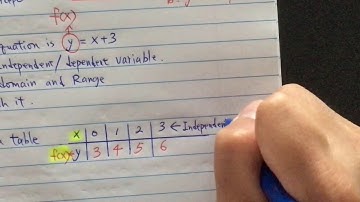 f(x)
quation is y = x+3
ndependent/dependent variable.
domain and Range
h it.
table
x 0 1 2 3 ← Independe
f(x)=y 3 4 5 6